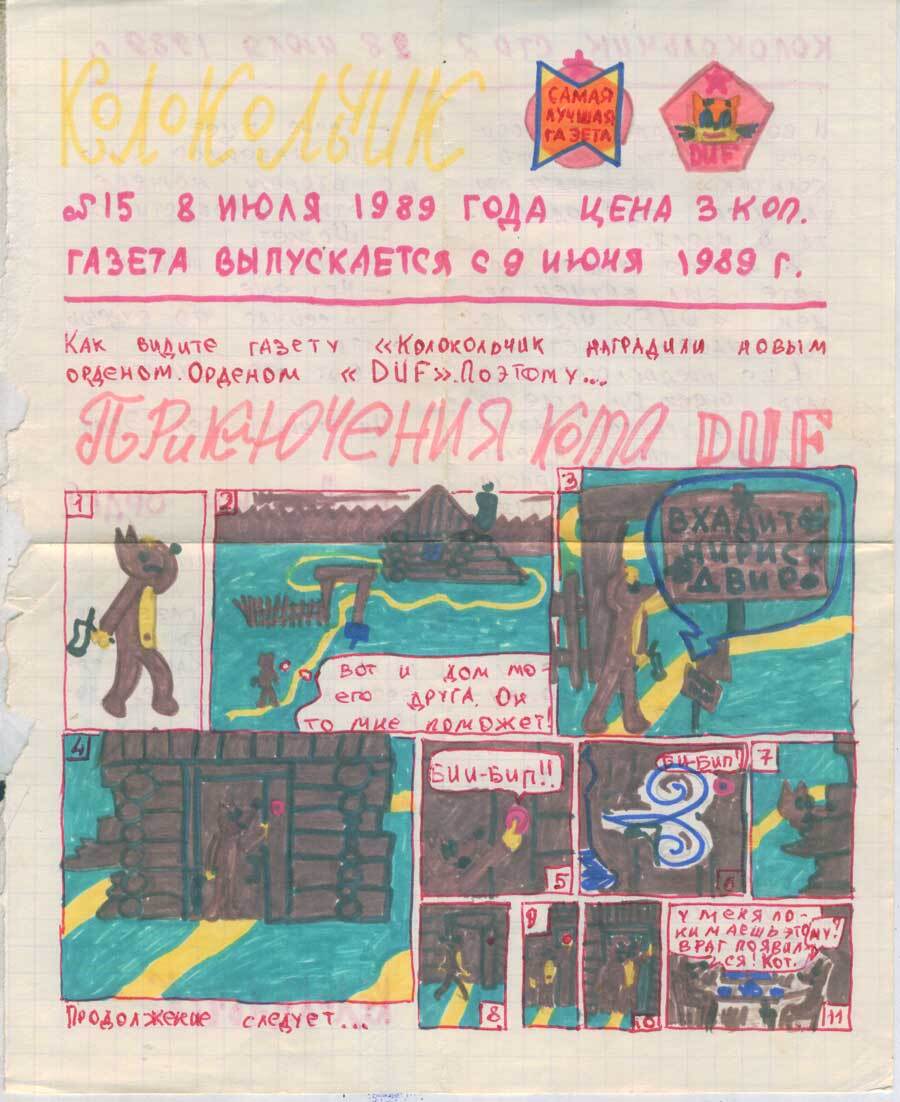 КОЛОКОЛЬЧИК
САМАЯ
ЛУЧШАЯ
ГАЗЕТА
DUF
№15 8 ИЮЛЯ 1989 ГОДА ЦЕНА 3 КОП.
ГАЗЕТА ВЫПУСКАЕТСЯ С 9 ИЮНЯ 1989 Г.
КАК ВИДИТЕ ГАЗЕТУ «КОЛОКОЛЬЧИК НАГРАДИЛИ НОВЫМ
ОРДЕНОМ. ОРДЕНОМ «DUF». ПОЭТОМУ...
ПРИКЛЮЧЕНИЯ КОТА DUF
1
2
ВОТ И ДОМ МО-
ЕГО ДРУГА. ОН
ТО МНЕ ПОМОЖЕТ!
3
ВХАДИТЕ
ДВИР
4
БИИ-БИП!!
5
БИ-БИП!
6
7
8
9
10
У МЕНЯ ПО-
НИМАЕШЬ ЭТО
ВРАГ ПОЯВИЛ-
СЯ! КОТ.
МУ?
11
ПРОДОЛЖЕНИЕ СЛЕДУЕТ...